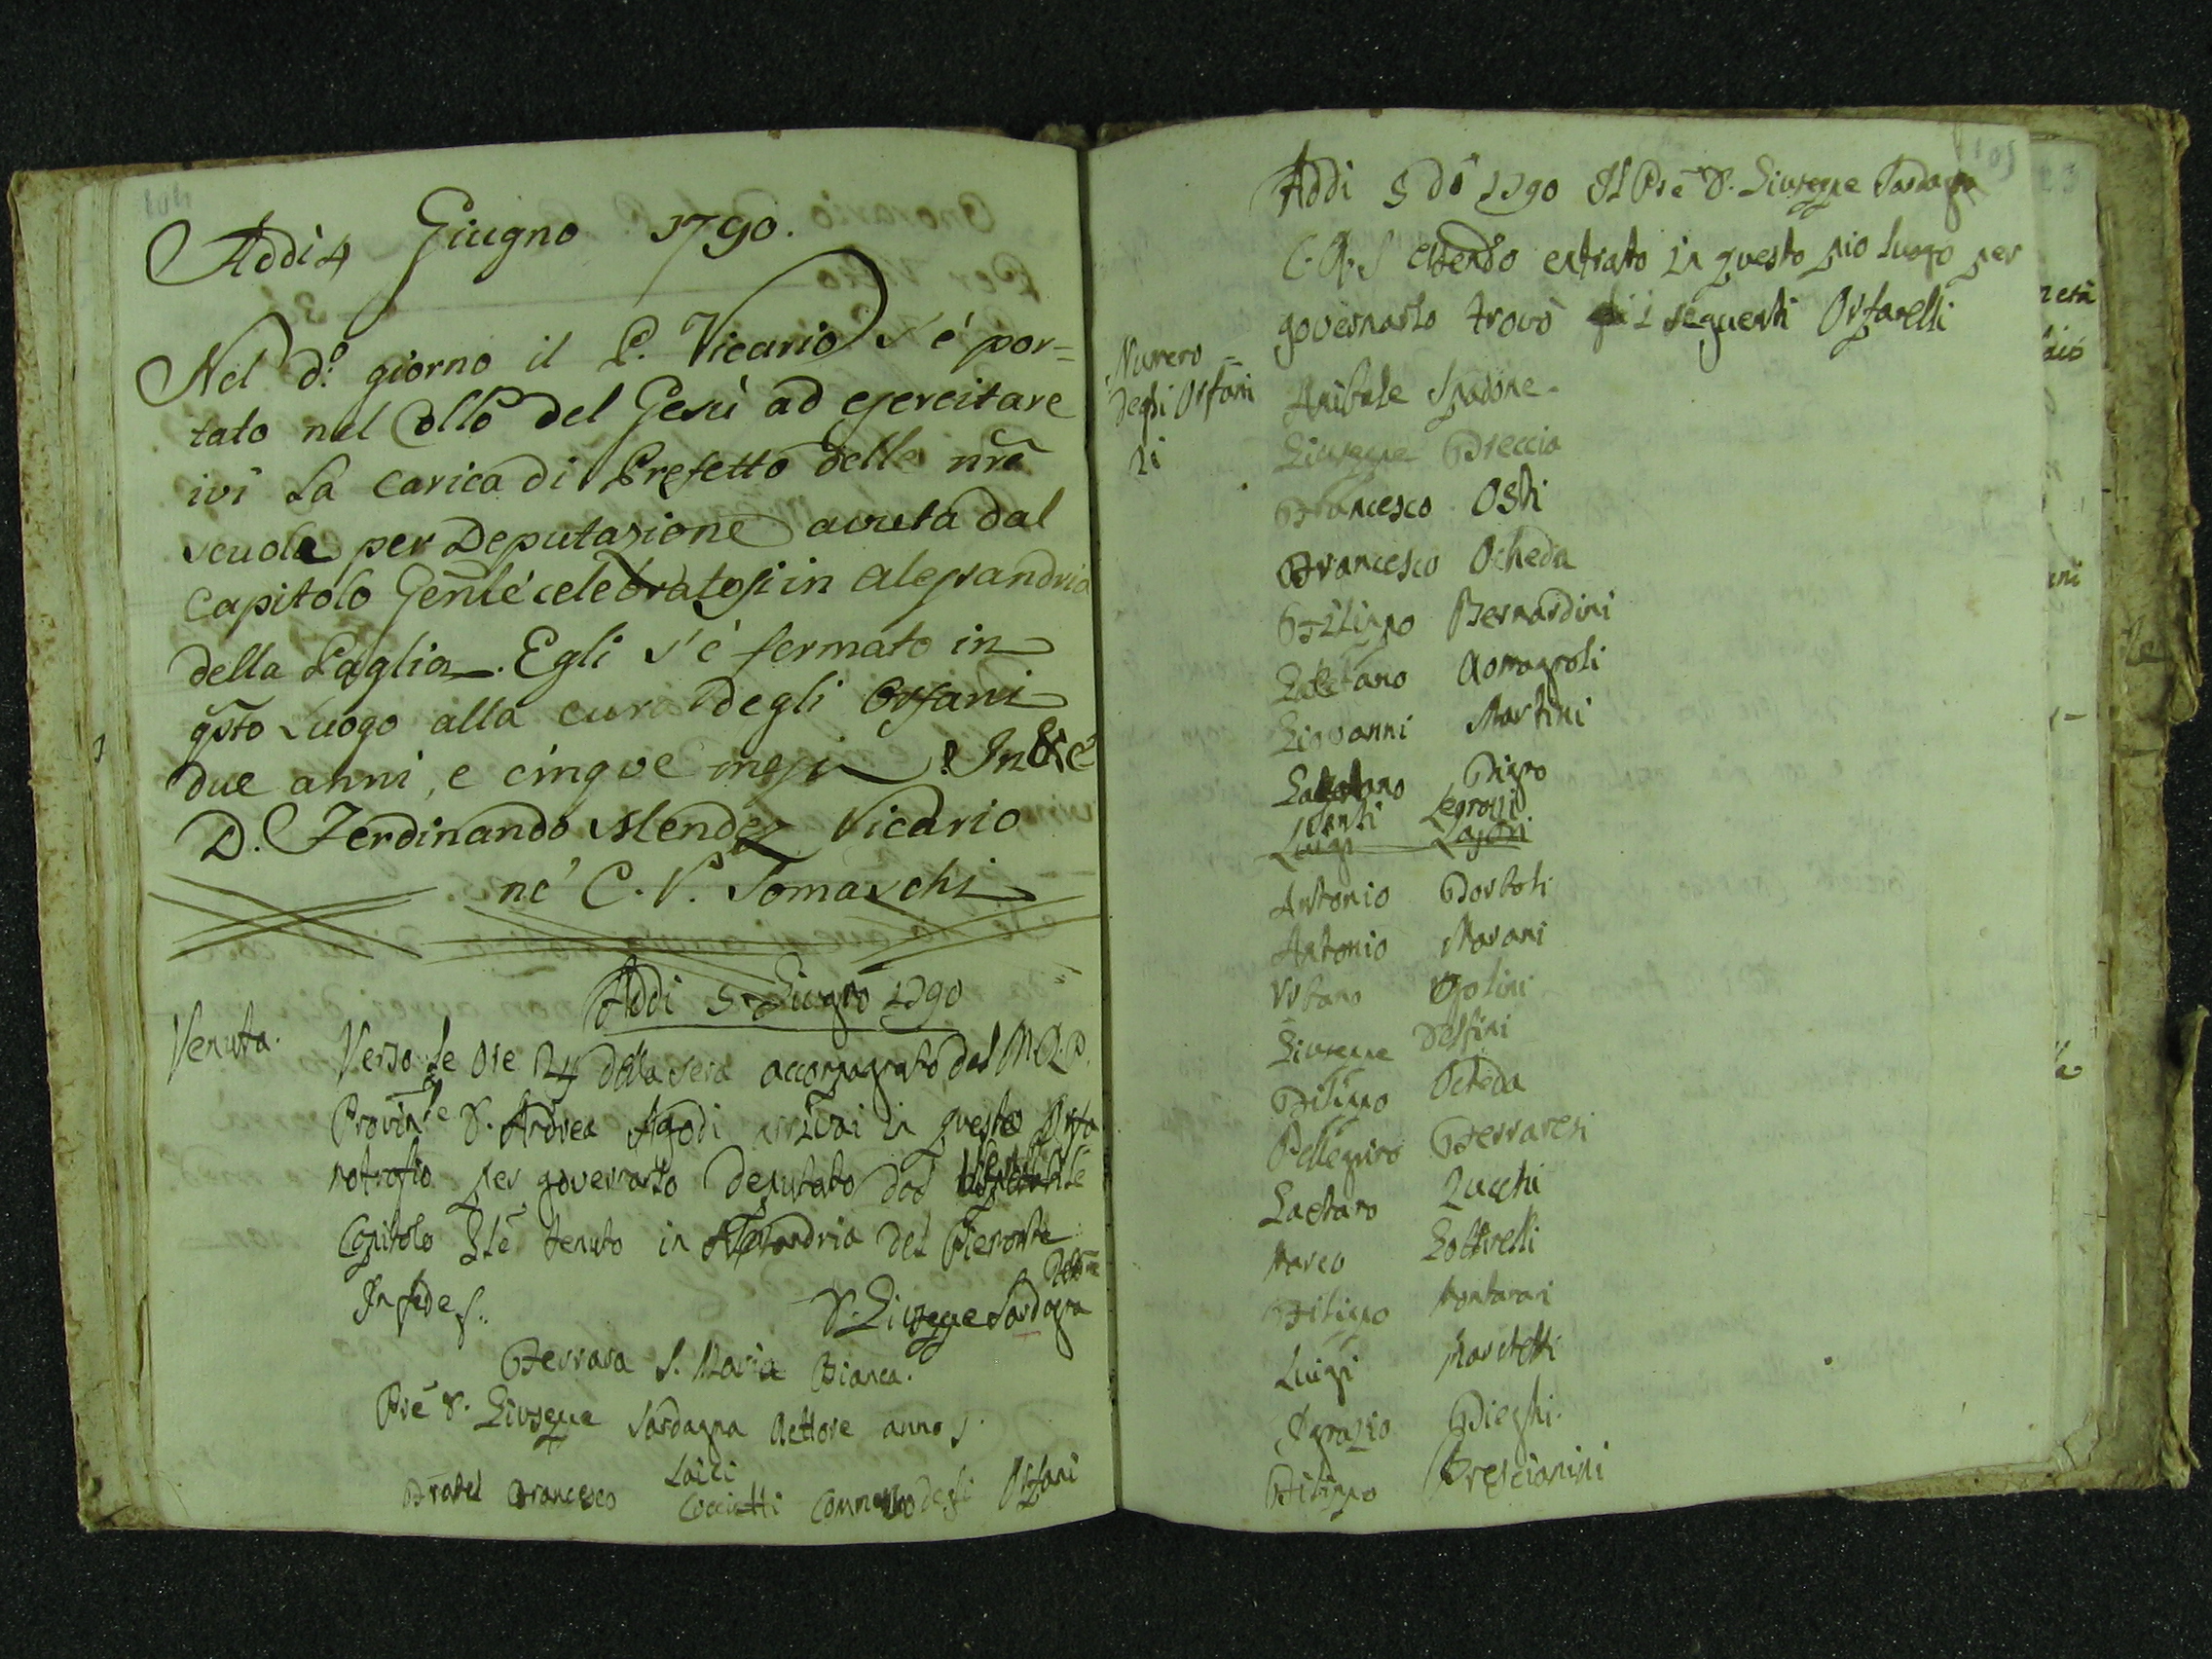 104
Addi 4 Giugno 1790.
Nel d.º giorno il P. Vicario s'é por=
tato nel Collº del Gesù ad esercitare
ivi la carica di Prefetto delle nrẽ
scuole per Deputazione avuta dal
Capitolo Genlé celebratosi in Alessandria
della Paglia. Egli s'è fermato in
qsto Luogo alla cura degli Orfani
due anni, e cinque mesi. In
D. Ferdinando Mendez Vicario
né C. R. Somaschi
Addi 5 Giugno 1790
Venuta.
Verso le ore 24 della sera accompagnato dal M. R. P.
Provinle D. Andrea Agodi arrivai in questo Orfa
notrofio per governarlo deputato dal
Capitolo Glẽ tenuto in Alessandria del Piemonte
In fede
D. Giuseppe Sardagna
Ferrara S. Maria Bianca.
Prẽ D. Giuseppe Sardagna Rettore anno
Laici
Fratel Francesco Cocciotti Commesso degli Orfani
105
Addi 5 dº 1790 Il Prẽ D. Giuseppe Sardagna
C. R. S essendo entrato in questo pio Luogo per
governarlo trovò i seguenti Orfanelli
Numero
degli Orfani
21
Anibale Spadone
Giuseppe Breccia
Francesco Osti
Francesco Ocheda
Filippo Bernardini
Gaetano Romagnoli
Giovanni Martini
Gaetano Pigno
Santi Legrossi
Luigi
Antonio Bortoli
Antonio Masani
Urbano Ugolini
Giuseppe Delfini
Filippo Ocheda
Pellegrino Ferraresi
Gaetano Zucchi
Marco Gottarelli
Filippo Montanari
Luigi Marchetti
Ignazio Pieghi.
Filippo Brescianini